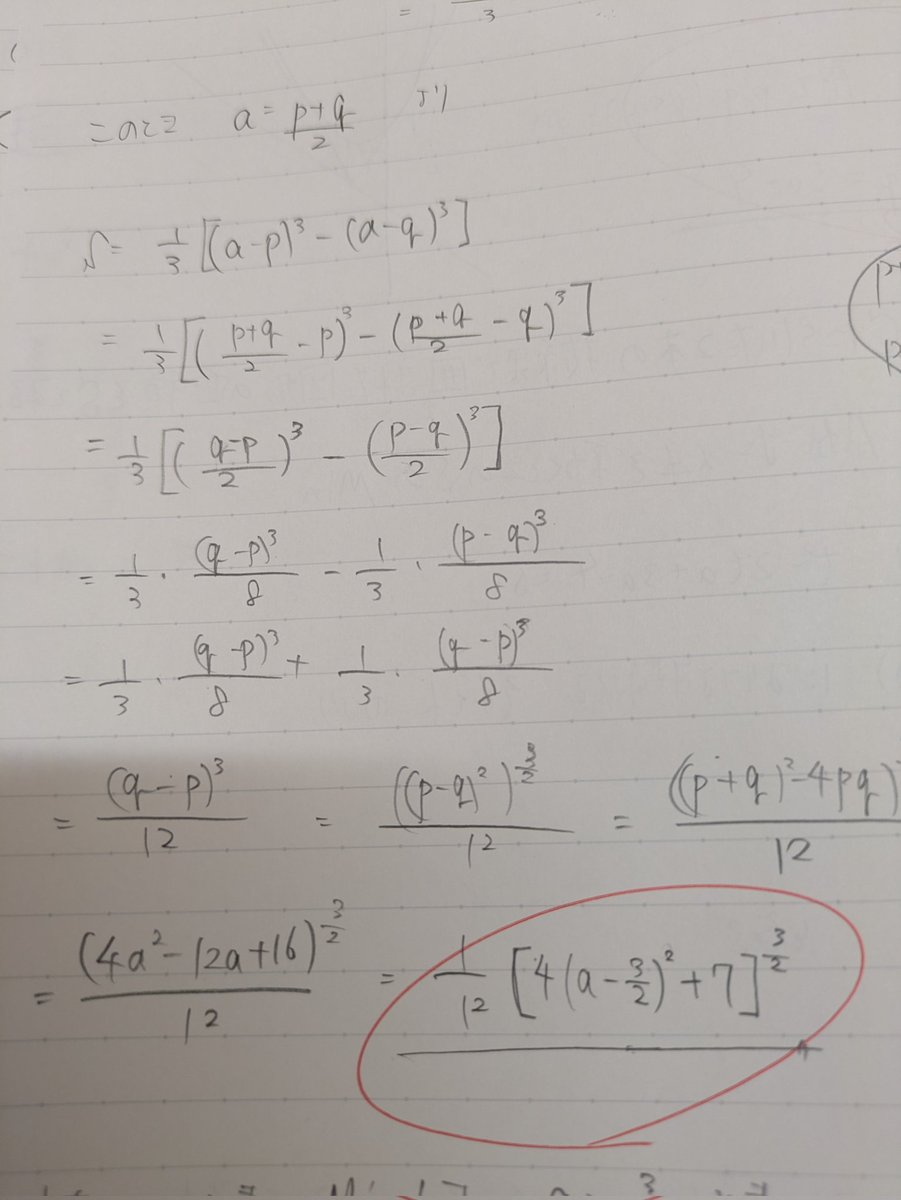 = 3
このとき a = \frac{p+q}{2} より
S = \frac{1}{3}[(a-p)^3 - (a-q)^3]
= \frac{1}{3}[(\frac{p+q}{2} - p)^3 - (\frac{p+q}{2} - q)^3]
= \frac{1}{3}[(\frac{q-p}{2})^3 - (\frac{p-q}{2})^3]
= \frac{1}{3} · \frac{(q-p)^3}{8} - \frac{1}{3} · \frac{(p-q)^3}{8}
= \frac{1}{3} · \frac{(q-p)^3}{8} + \frac{1}{3} · \frac{(q-p)^3}{8}
= \frac{(q-p)^3}{12} = \frac{((p-q)^2)^{\frac{3}{2}}}{12} = \frac{((p+q)^2-4pq)}{12}
= \frac{(4a^2-12a+16)^{\frac{3}{2}}}{12} = \frac{1}{12}[4(a-\frac{3}{2})^2+7]^{\frac{3}{2}}